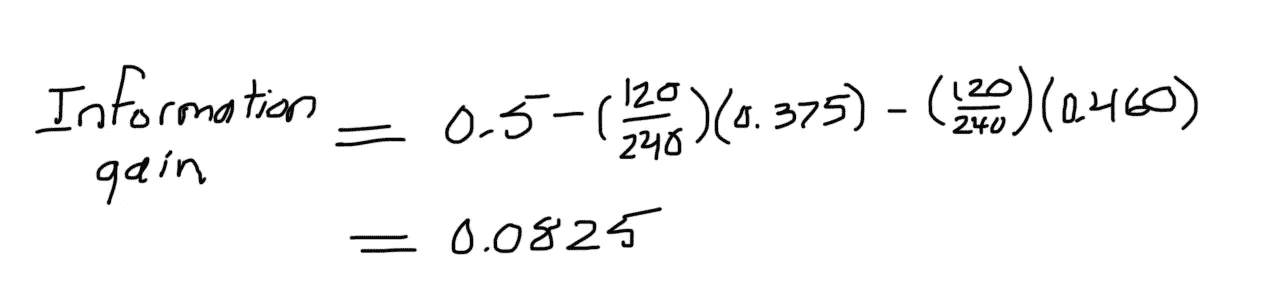 Information gain = 0.5 - (120/240)(0.375) - (120/240)(0.460)
= 0.0825